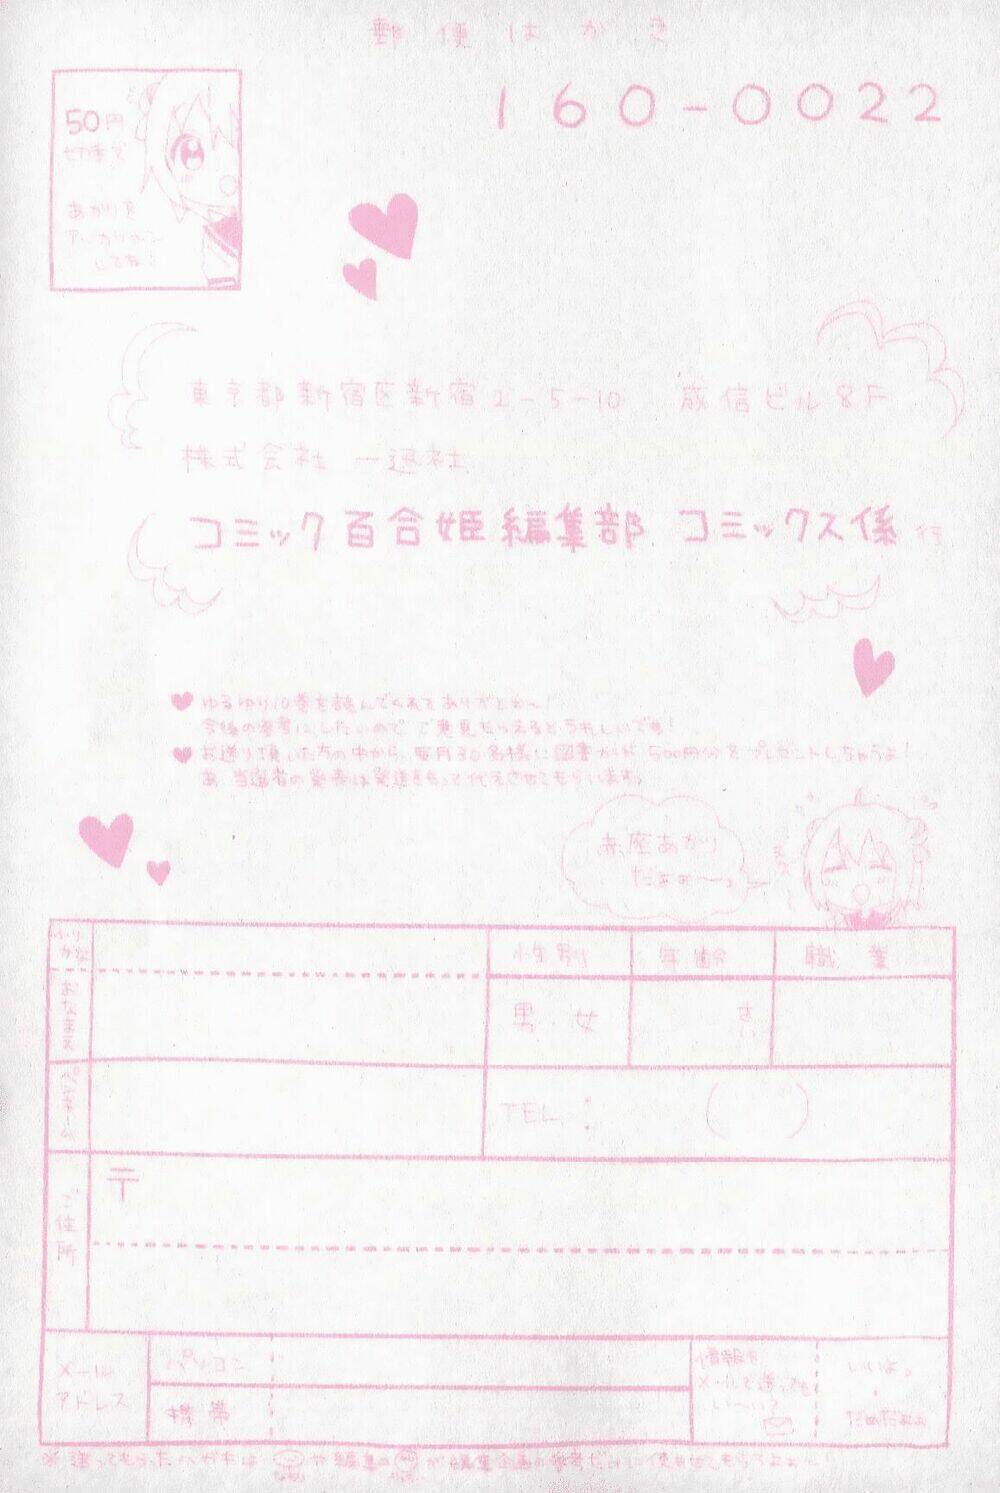 郵便はがき
160-0022
50円
切手で
あかりを
アッカリ〜ン
してね♪
東京都新宿区新宿2-5-10 成信ビル8F
株式会社 一迅社
コミック百合姫編集部 コミックス係 行
♥ ゆるゆり10巻を読んでくれてありがとね〜!
今後の参考にしたいので ご意見もらえるとうれしいです!
♥ お送り頂いた方の中から、毎月30名様に図書カード500円分をプレゼントしちゃうよ!
あ、当選者の発表は発送をもって代えさせてもらいます。
赤座あかり
だよぉ〜っ
ふりがな
おなまえ
性別
年齢
職業
男・女
さい
ペンネーム
TEL: ( )
ご住所
〒
メールアドレス
パソコン
携帯
情報を
メールで送っても
い〜い?
いいよっ
・
だめだよぉ
※送ってもらったハガキは や編集の が編集企画の参考だけに使わせてもらうよぉ〜!